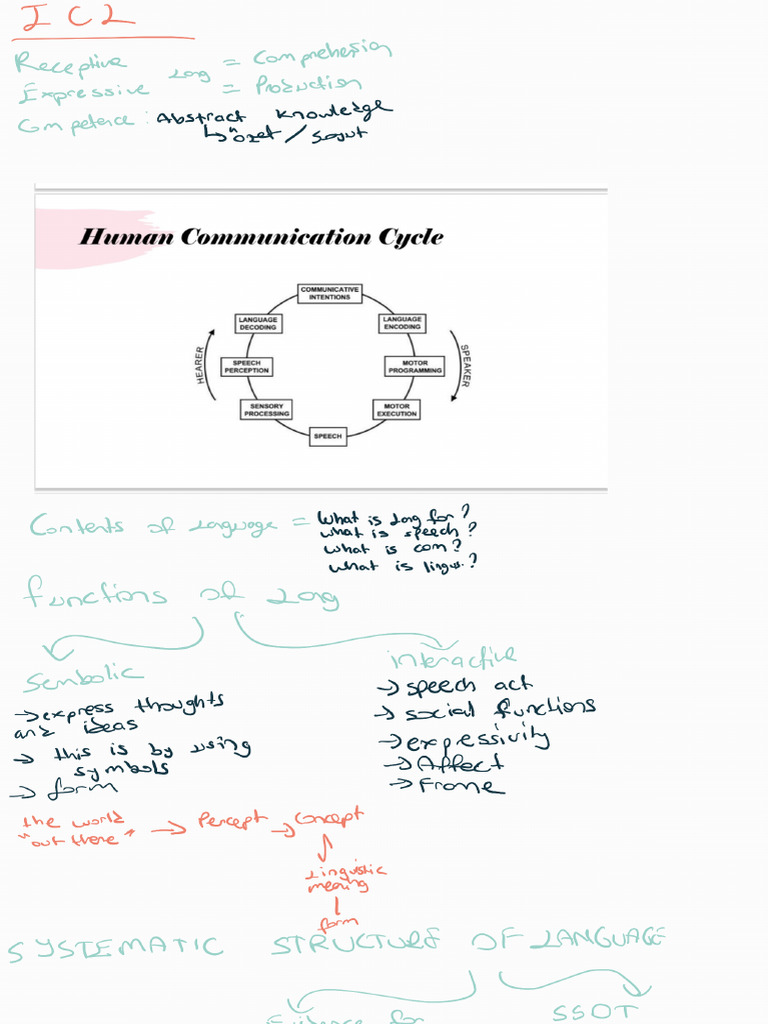 ICL
Receptive Lang = Comprehension
Expressive = Production
Competence: Abstract Knowledge
↳ özet / soyut
Human Communication Cycle
COMMUNICATIVE
INTENTIONS
LANGUAGE
DECODING
LANGUAGE
ENCODING
HEARER
SPEECH
PERCEPTION
MOTOR
PROGRAMMING
SPEAKER
SENSORY
PROCESSING
MOTOR
EXECUTION
SPEECH
Contents of Language = What is Lang for?
what is speech?
what is com?
what is lingus.?
functions of Lang
Sembolic
→ express thoughts
and ideas
→ this is by using
symbols
→ form
interactive
→ speech act
→ social functions
→ expressivity
→ Affect
→ Frame
the world
"out there" → Percept → Concept
Linguistic
meaning
form
SYSTEMATIC STRUCTURE OF LANGUAGE
Evidence for
SSOT